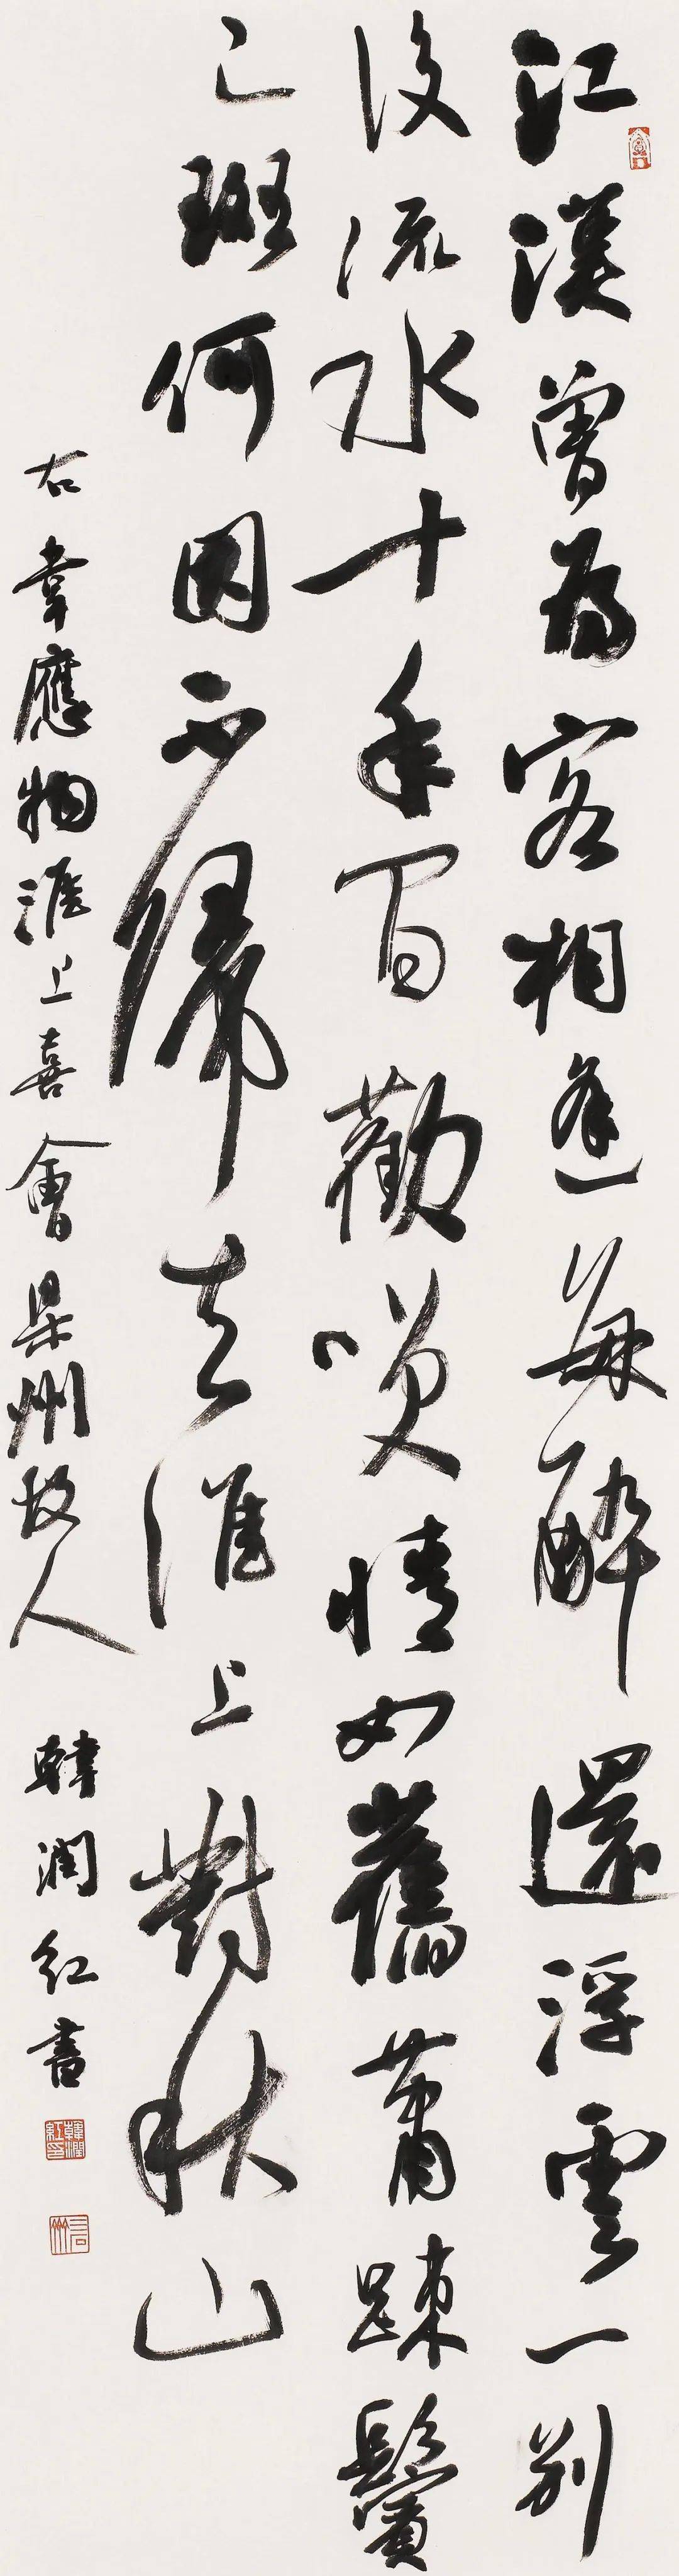 江漢曾為客相逢每醉還浮雲一別
後流水十年間歡咲情如舊蕭踈鬢
已斑何因不歸去淮上對秋山
右韋應物淮上喜會梁州故人 韓潤紅書
韓潤紅印